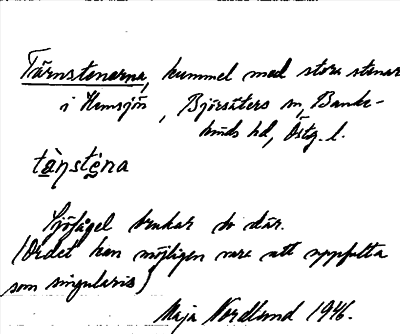 Tärnstenarna, kummel med stora stenar
i Hemsjön, Björsäters sn, Banke-
kinds hd, Östg. l.
tä̀ṇsténa
Sjöfågel brukar bo där.
(Ordet kan möjligen vara att uppfatta
som singularis)
Maja Nordlund 1946.